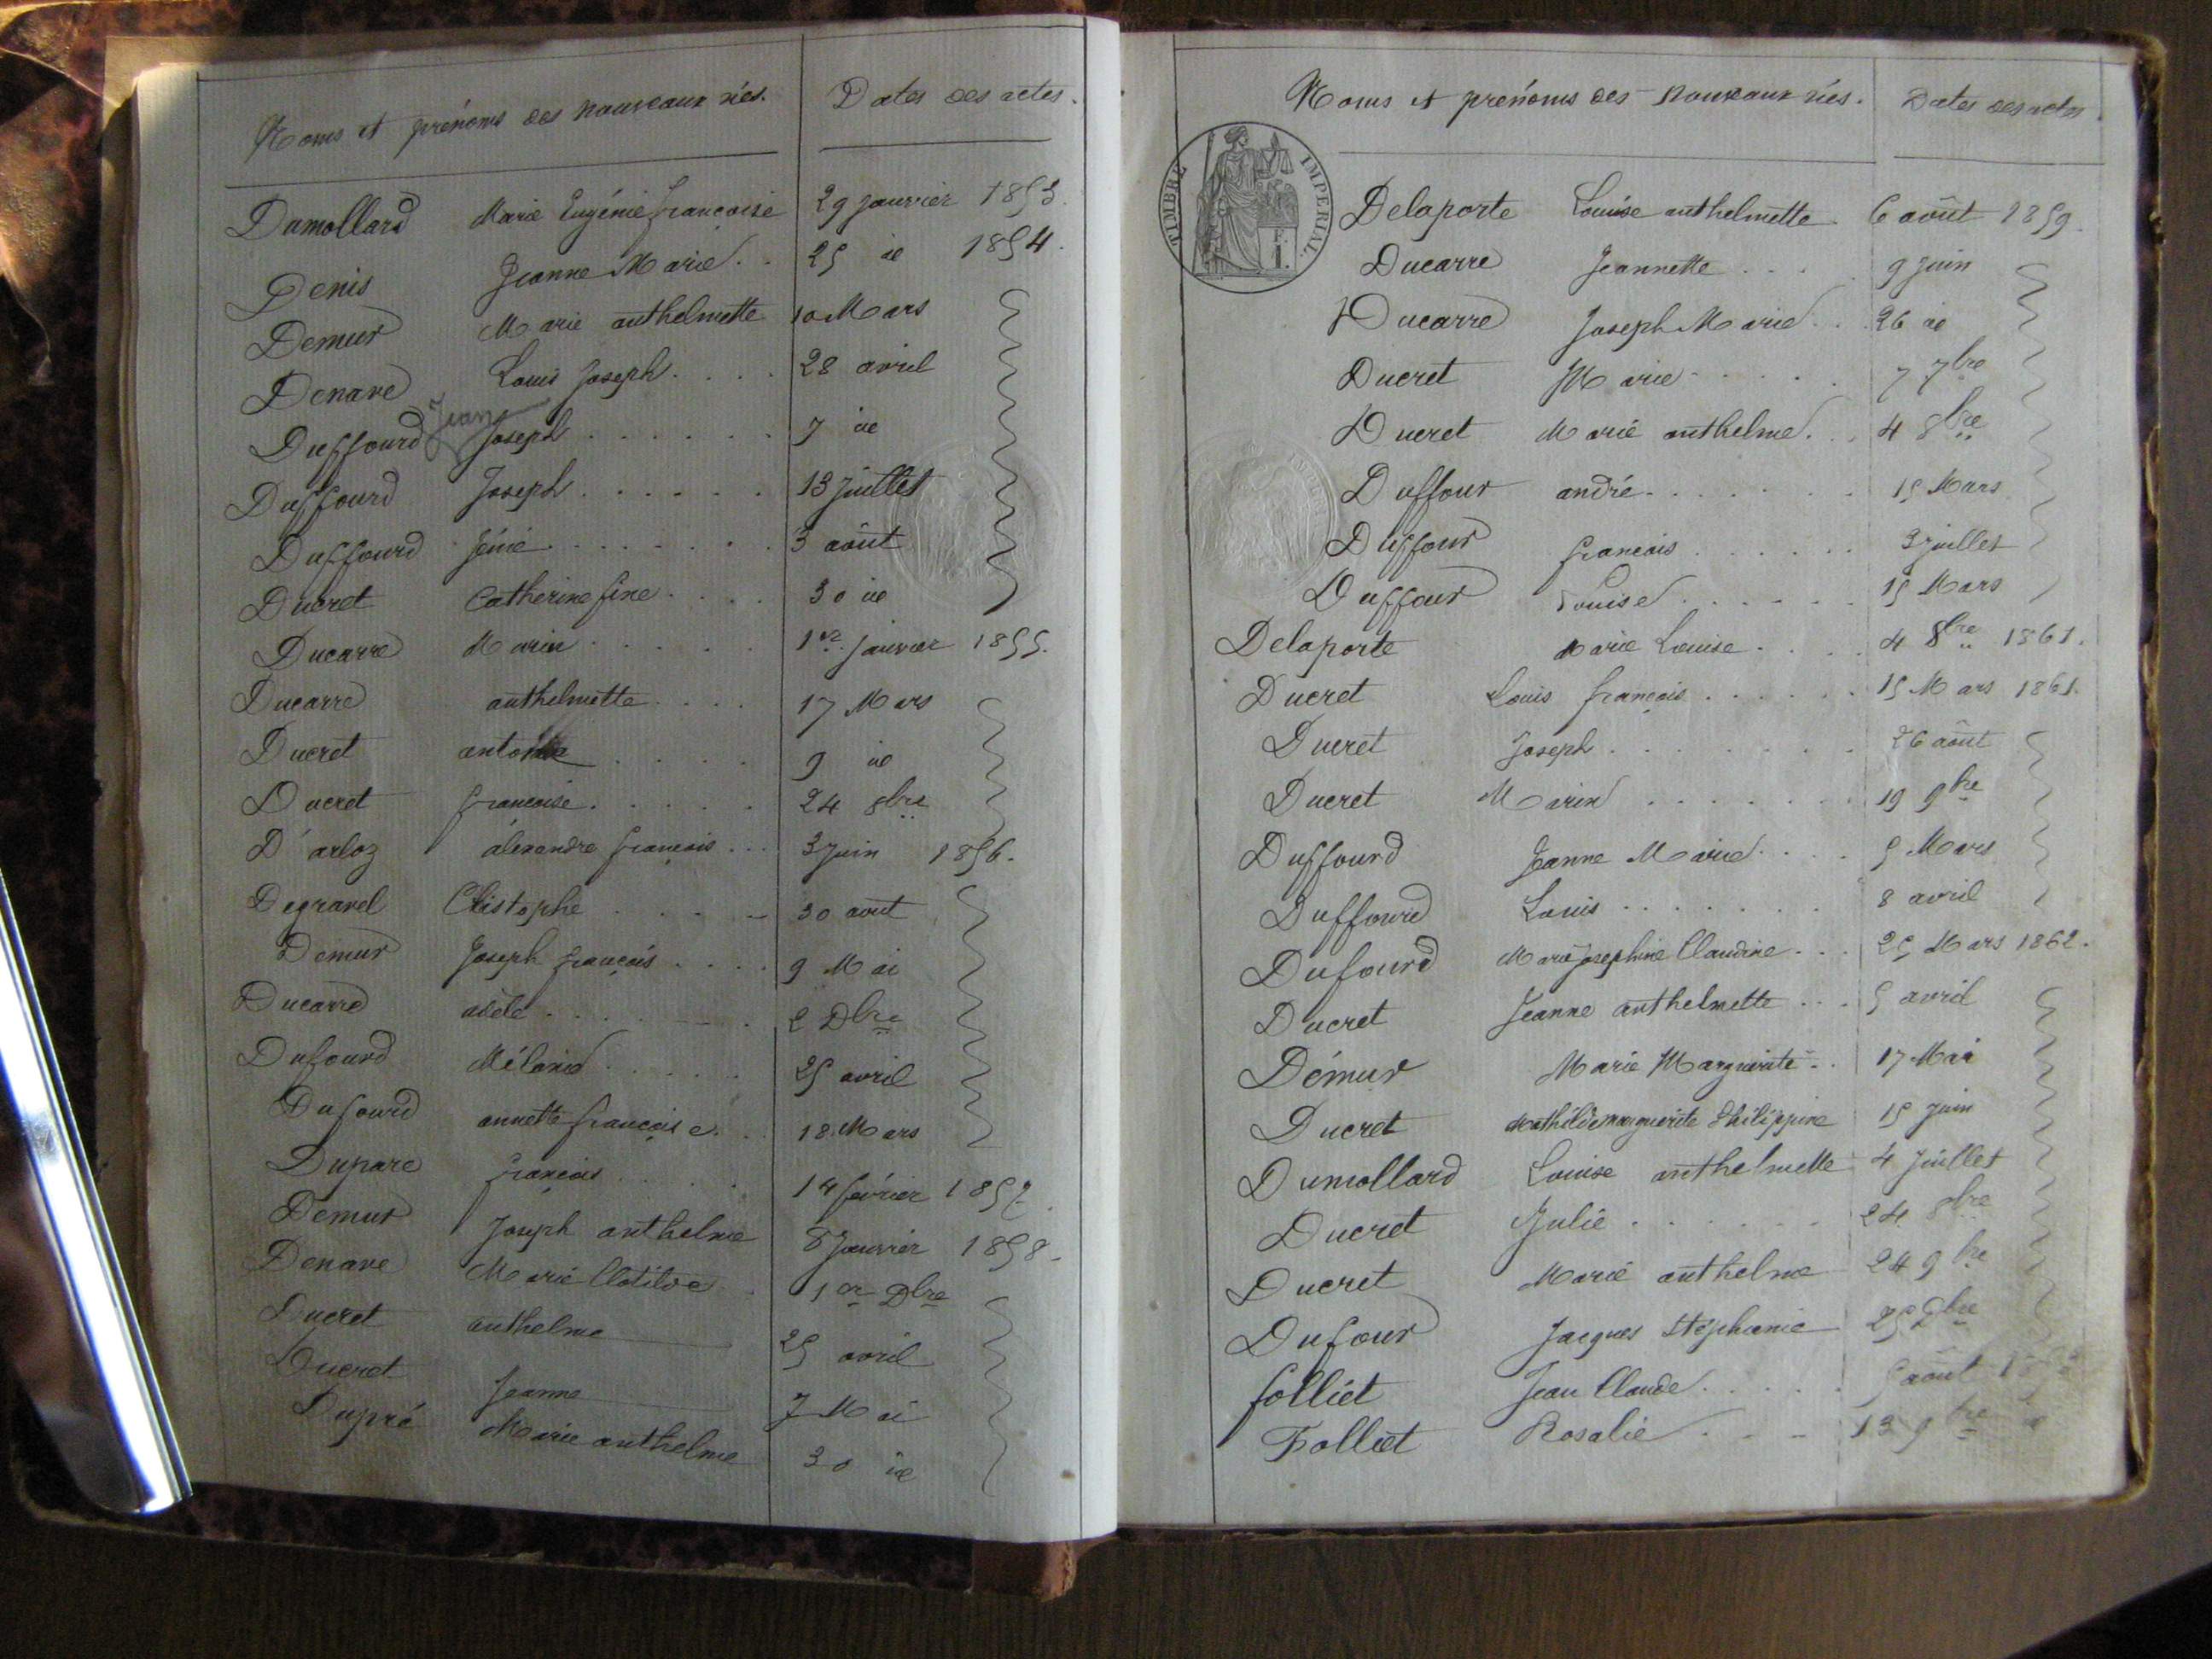 Noms et prénoms des nouveaux nés. Dates des actes.
Dumollard Marie Eugénie françoise 29 Janvier 1853.
Denis Jeanne Marie. . 25 id 1854.
Demur Marie anthelmette 10 Mars
Denave Louis Joseph. . . . 28 avril
Jean
Duffourd Joseph . . . . . . 7 id
Duffourd Joseph . . . . . . 13 Juillet
Duffourd Jénie . . . . . . . 3 août
Ducret Catherine fine . . . . 30 id
Ducarre Marin . . . . . 1er Janvier 1855.
Ducarre anthelmette . . . . 17 Mars
Ducret . . . . 9 id
Ducret françoise. . . . . . 24 8bre
D'arloz alexandre françois . . . 3 Juin 1856.
Degravel Christophe . . . . 30 août
Demur Joseph françois . . . . 9 Mai
Ducarre adèle . . . . . . . 2 Dbre
Dufourd Mélanie . . . . . 25 avril
Dufourd annette françoise. . 18 Mars
Duparc françois . . . . . 14 février 1857.
Demur Joseph anthelme 8 Janvier 1858.
Denave Marie Clotilde . 1er Dbre
Ducret anthelme 25 avril
Ducret Jeanne 7 Mai
Dupré Marie anthelme 30 id
Noms et prénoms des nouveaux nés. Dates des actes.
TIMBRE IMPERIAL.
Delaporte Louise anthelmette. 6 août 1859.
Ducarre Jeannette . . . . 9 Juin
Ducarre Joseph Marie . . 26 id
Ducret Marie . . . . . . 7 7bre
Ducret Marie anthelme. . . 4 8bre
Duffour andré . . . . . . . 15 Mars
Duffour françois . . . . . . 3 juillet
Duffour Louise . . . . . . 15 Mars
Delaporte Marie Louise . . . . 4 8bre 1861.
Ducret Louis françois . . . . . . 15 Mars 1861.
Ducret Joseph . . . . . . . . 26 août
Ducret Marin . . . . . . . 19 9bre
Duffourd Jeanne Marie . . . . 5 Mars
Duffourd Louis . . . . . . . 8 avril
Dufourd Marie Josephine Claudine . . . 25 Mars 1862.
Ducret Jeanne anthelmette . . . 5 avril
Démur Marie Marguerite . . 17 Mai
Ducret Mathilde Marguerite Philippine 15 Juin
Dumollard Louise anthelmette 4 Juillet
Ducret Julie . . . . . . . 24 8bre
Ducret Marie anthelme 24 9bre
Dufour Jacques Stéphanie 25 Dbre
folliet Jean Claude . . . . . 5 août
Folliet Rosalie . . . 13 9bre